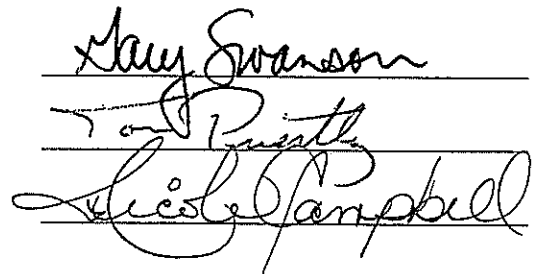 Gary Swanson
Tom Priestly
Nicole Campbell